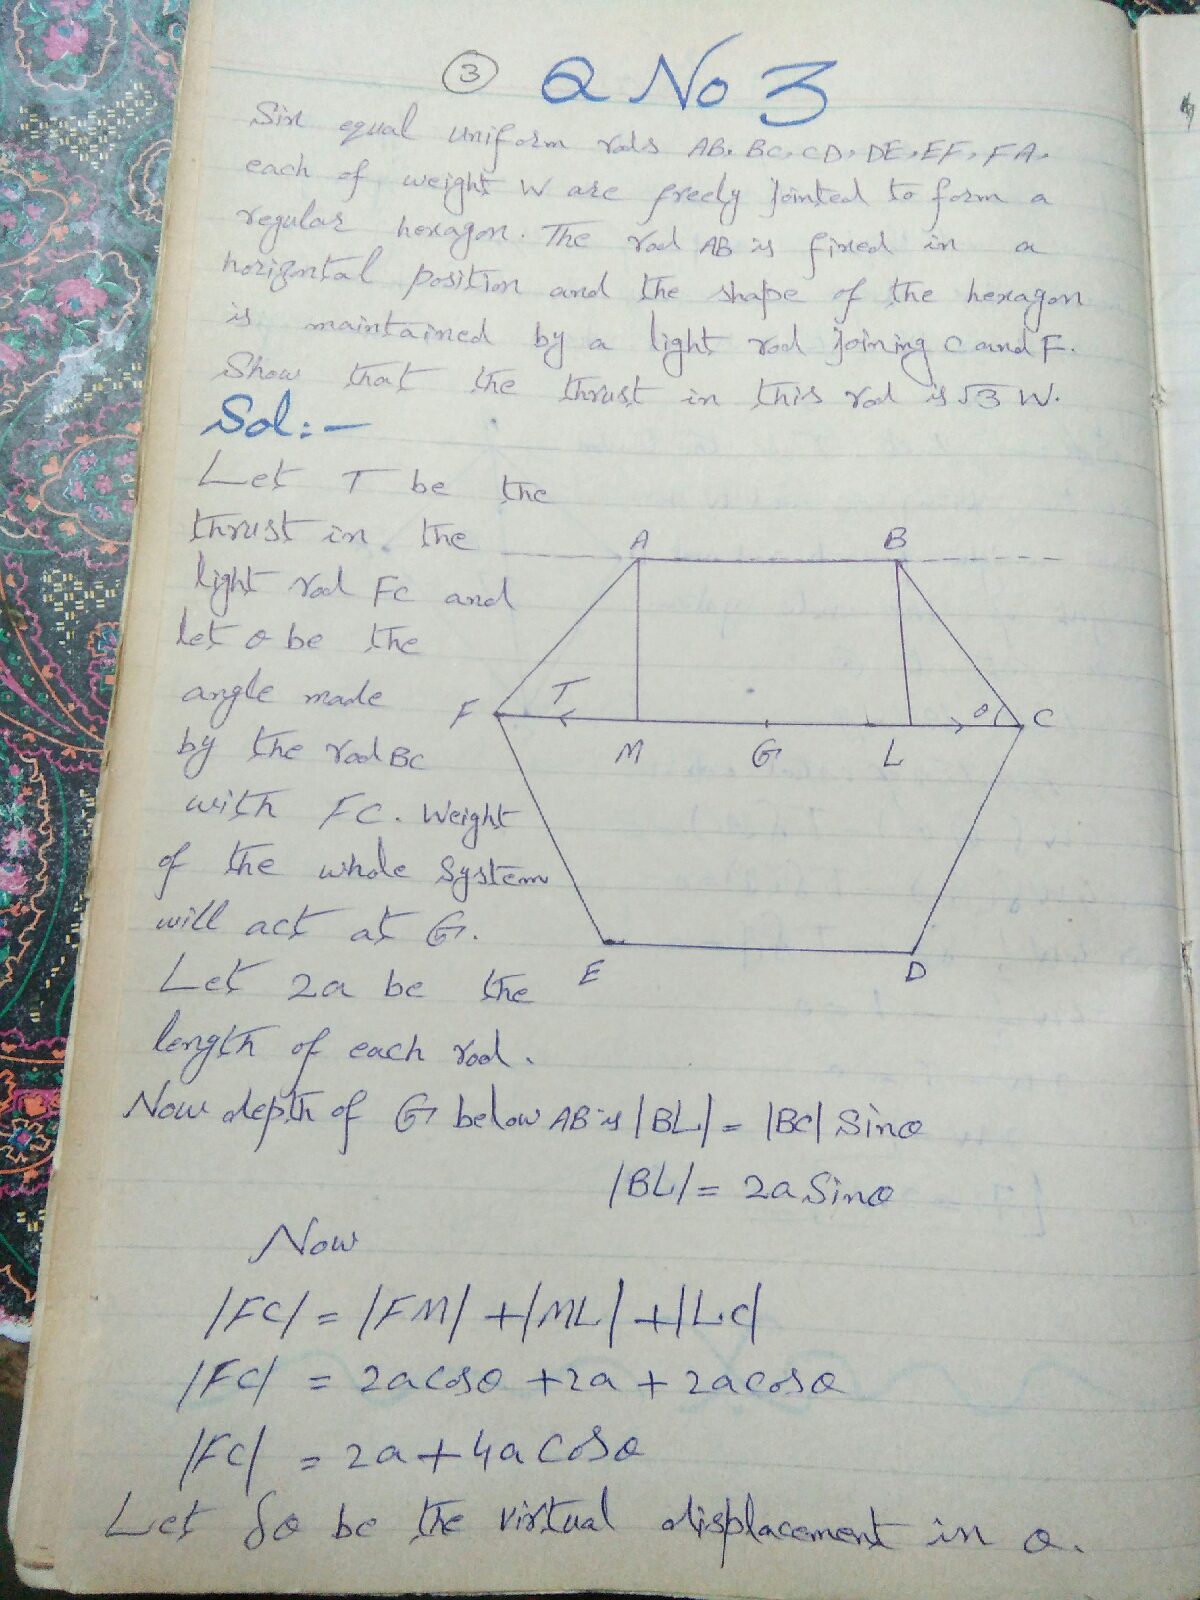 3 Q No 3
Six equal uniform rods AB, BC, CD, DE, EF, FA,
each of weight W are freely jointed to form a
regular hexagon. The rod AB is fixed in a
horizontal position and the shape of the hexagon
is maintained by a light rod joining C and F.
Show that the thrust in this rod is √3 W.
Sol:-
Let T be the
thrust in the
light rod FC and
let θ be the
angle made
by the rod BC
with FC. Weight
of the whole System
will act at G.
Let 2a be the
length of each rod.
A B
F T θ C
M G L
E D
Now depth of G below AB is |BL| = |BC| Sinθ
|BL| = 2a Sinθ
Now
|FC| = |FM| + |ML| + |LC|
|FC| = 2a cosθ + 2a + 2a cosθ
|FC| = 2a + 4a Cosθ
Let δθ be the virtual displacement in θ.